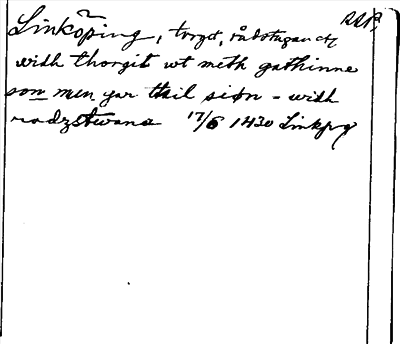 Linköping, torget, rådstugan etc SRAp,
widh thorgit wt meth gathinne
son men gar thil siön - widh
radzstwana 17/6 1430 Linkpg